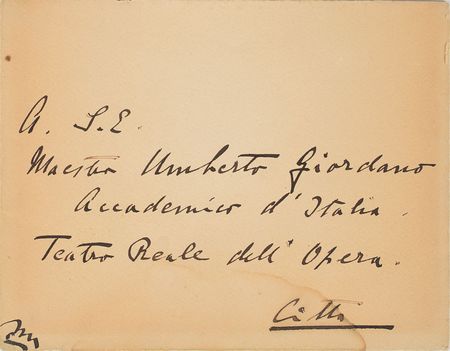 A. S.E.
Maestro Umberto Giordano
Accademico d'Italia.
Teatro Reale dell'Opera.
Città